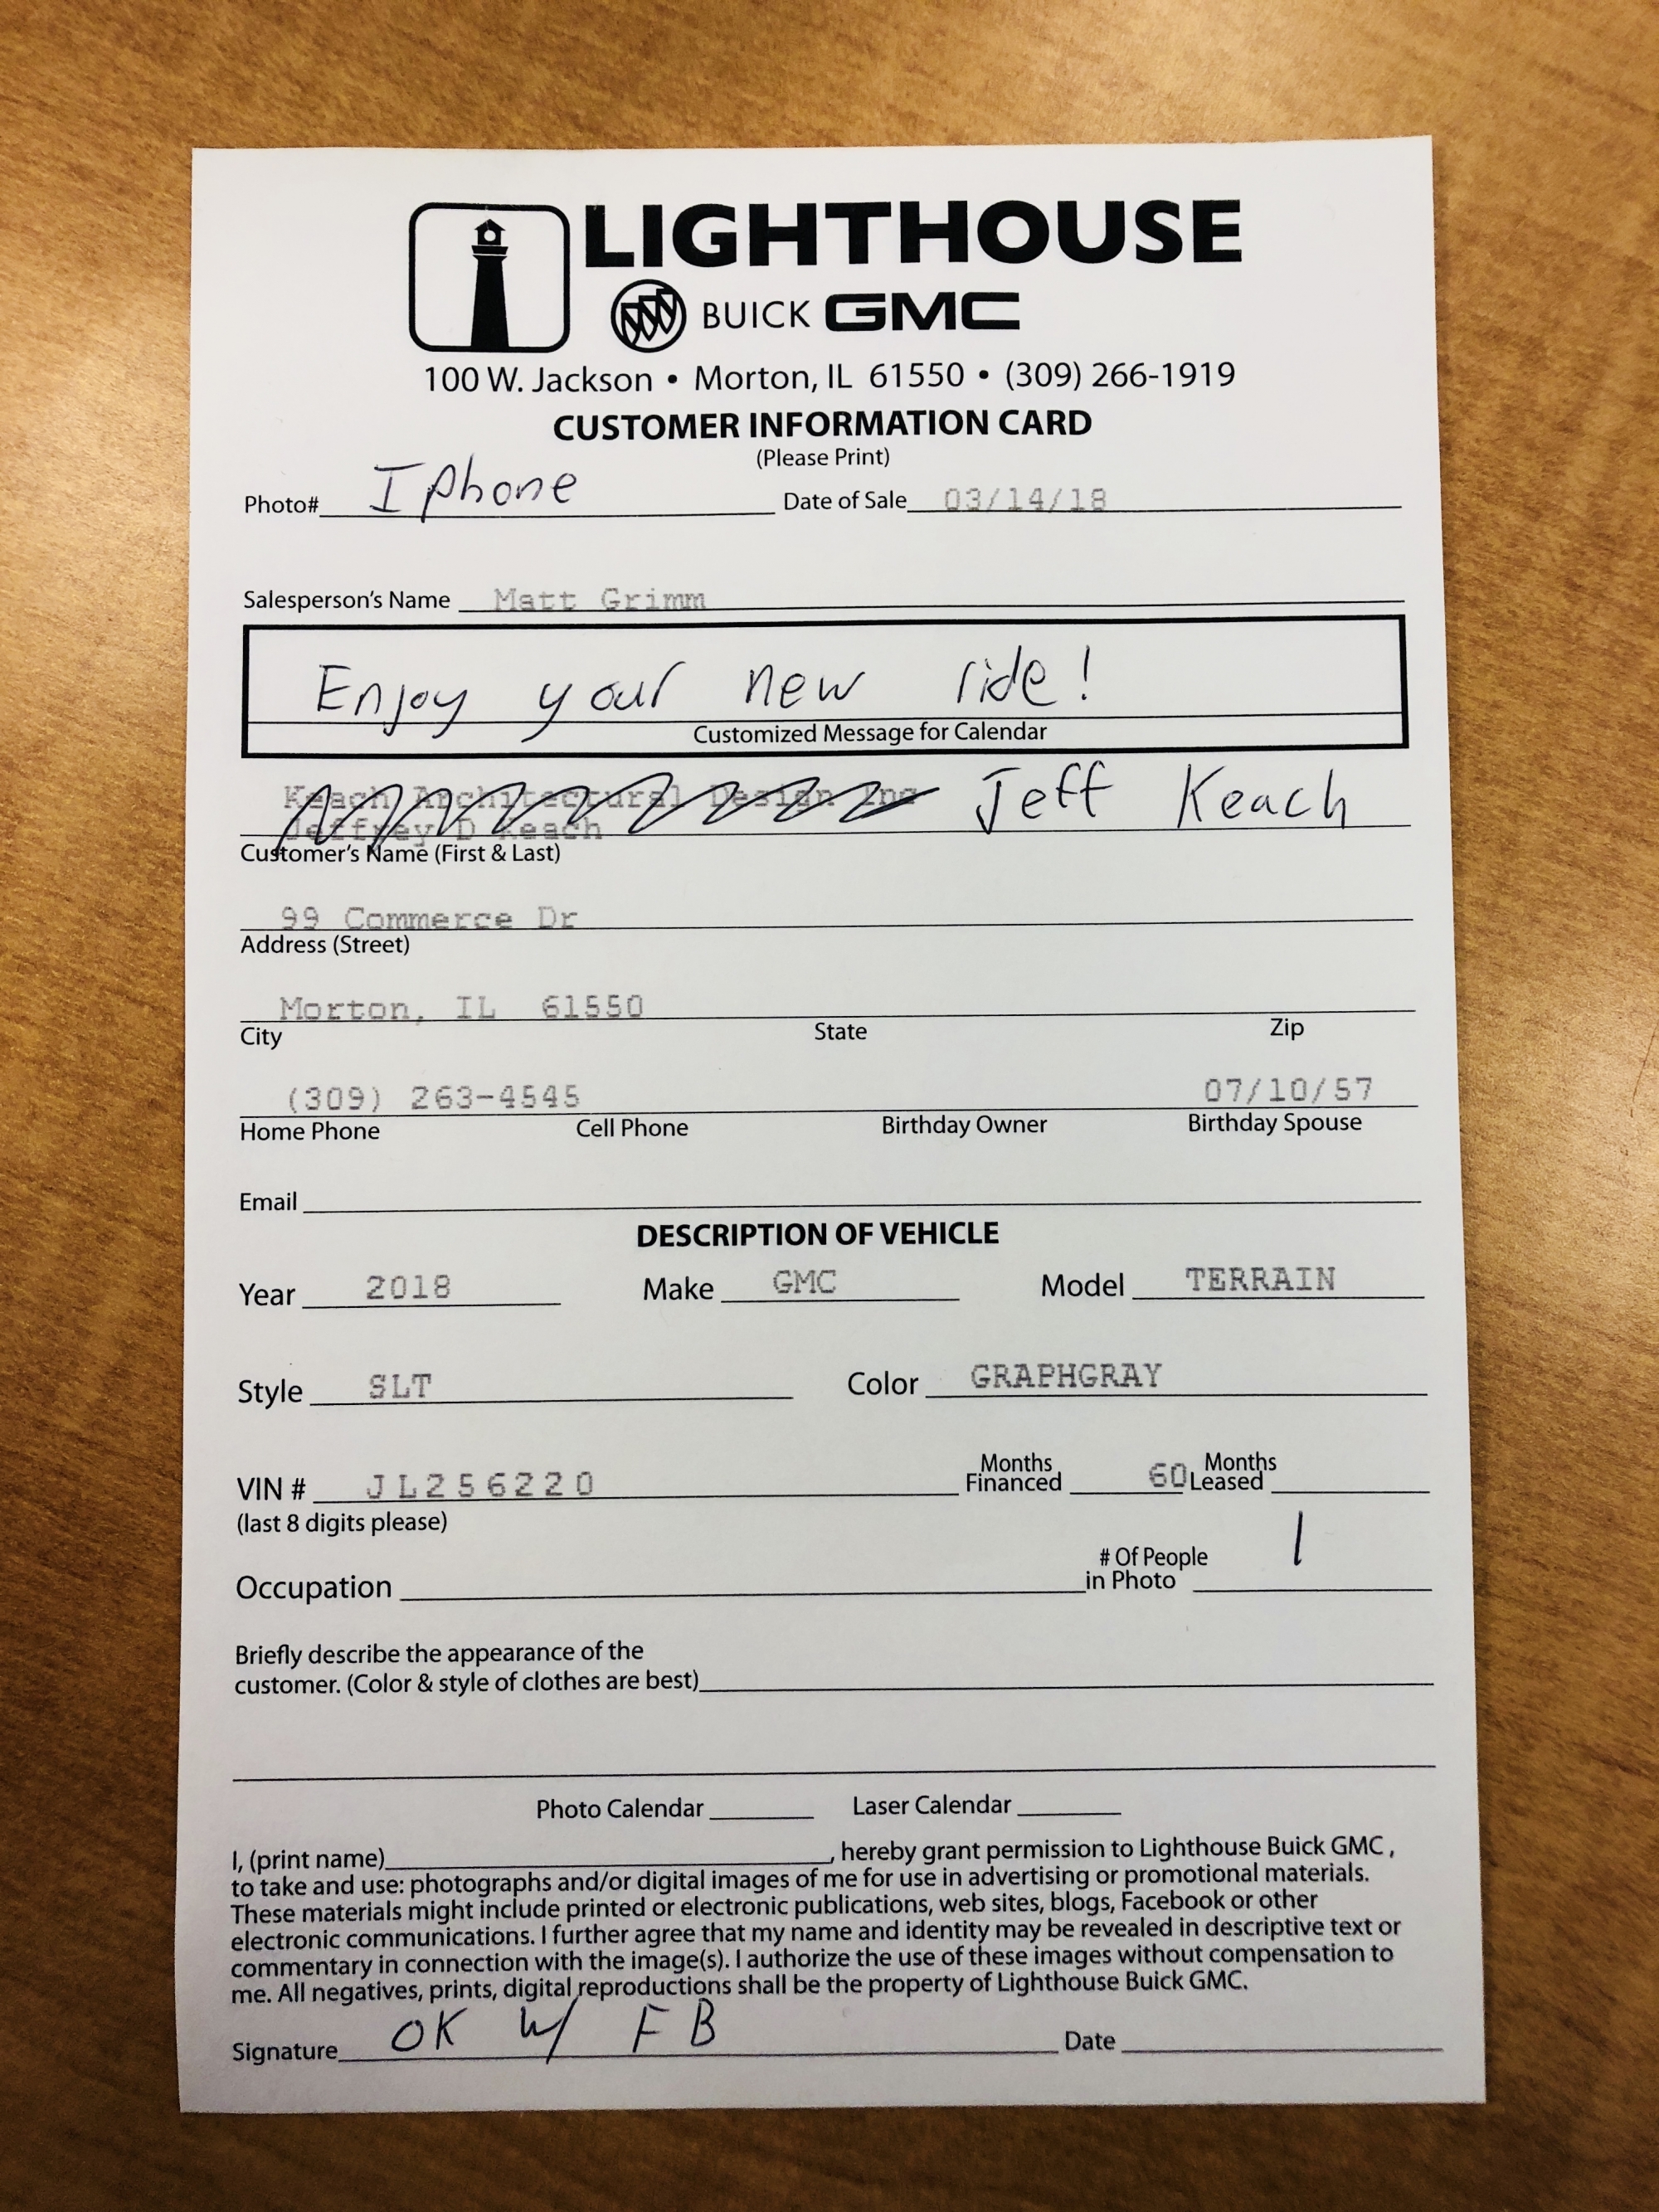 LIGHTHOUSE
BUICK GMC
100 W. Jackson • Morton, IL 61550 • (309) 266-1919
CUSTOMER INFORMATION CARD
(Please Print)
Photo# Iphone Date of Sale 03/14/18
Salesperson's Name Matt Grimm
Enjoy your new ride!
Customized Message for Calendar
Keach Architectural Design Inc Jeff Keach
Jeffrey D Keach
Customer's Name (First & Last)
99 Commerce Dr
Address (Street)
Morton, IL 61550
City State Zip
(309) 263-4545 07/10/57
Home Phone Cell Phone Birthday Owner Birthday Spouse
Email
DESCRIPTION OF VEHICLE
Year 2018 Make GMC Model TERRAIN
Style SLT Color GRAPHGRAY
VIN # JL256220 Months Financed 60 Months Leased
(last 8 digits please)
Occupation # Of People in Photo 1
Briefly describe the appearance of the
customer. (Color & style of clothes are best)
Photo Calendar Laser Calendar
I, (print name) , hereby grant permission to Lighthouse Buick GMC ,
to take and use: photographs and/or digital images of me for use in advertising or promotional materials.
These materials might include printed or electronic publications, web sites, blogs, Facebook or other
electronic communications. I further agree that my name and identity may be revealed in descriptive text or
commentary in connection with the image(s). I authorize the use of these images without compensation to
me. All negatives, prints, digital reproductions shall be the property of Lighthouse Buick GMC.
Signature OK w/ FB Date